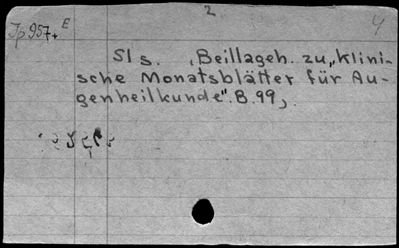 2
4
Jp 957.+ E
Sl s. (Beillageh. zu „Klini-
sche Monatsblätter für Au-
genheilkunde". B. 99,